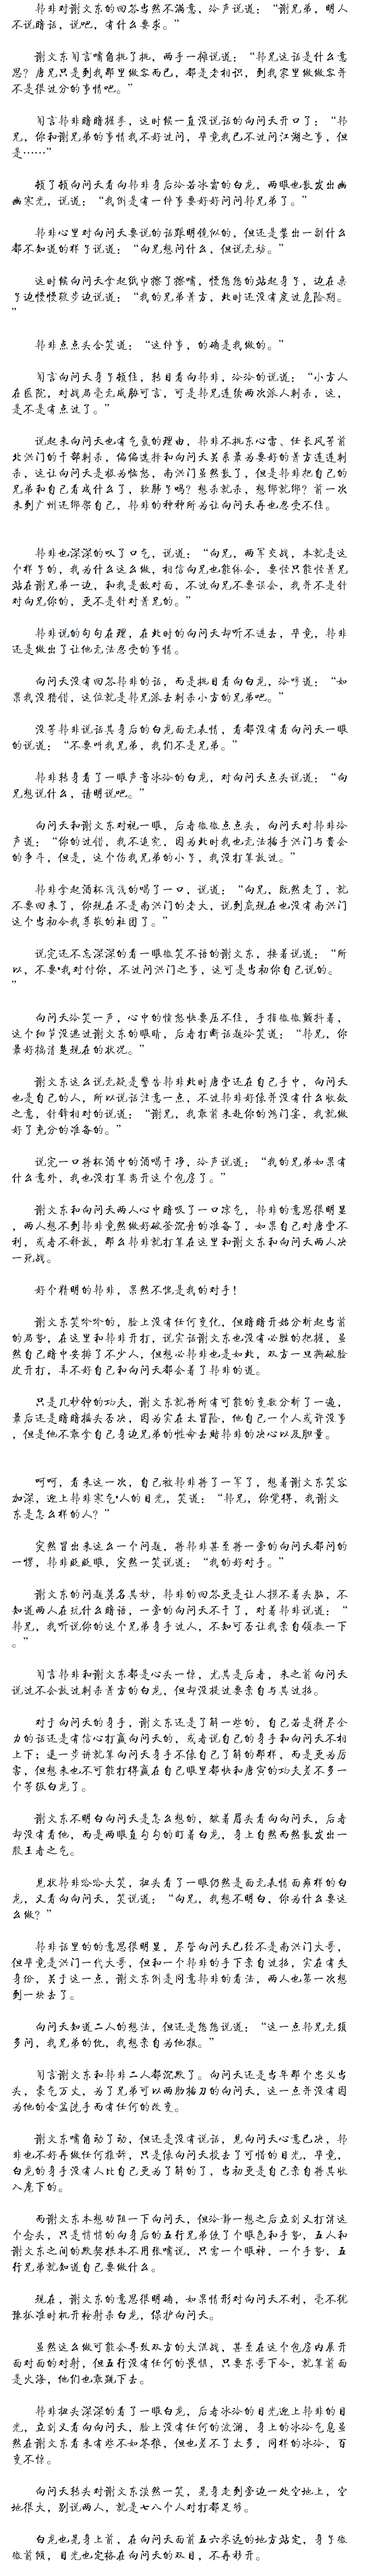 韩非对谢文东的回答当然不满意，冷声说道：“谢兄弟，明人
不说暗话，说吧，有什么要求。”
谢文东闻言嘴角挑了挑，两手一摊说道：“韩兄这话是什么意
思？唐兄只是到我那里做客而已，都是老相识，到我家里做做客并
不是很过分的事情吧。”
闻言韩非暗暗握拳，这时候一直没说话的向问天开口了：“韩
兄，你和谢兄弟的事情我不好过问，毕竟我已不过问江湖之事，但
是……”
顿了顿向问天看向韩非身后冷若冰霜的白龙，两眼也散发出幽
幽寒光，说道：“我倒是有一件事要好好问问韩兄弟了。”
韩非心里对向问天要说的话跟明镜似的，但还是装出一副什么
都不知道的样子说道：“向兄想问什么，但说无妨。”
这时候向问天拿起纸巾擦了擦嘴，慢悠悠的站起身子，边在桌
子边慢慢散步边说道：“我的兄弟萧方，此时还没有度过危险期。
”
韩非点点头含笑道：“这件事，的确是我做的。”
闻言向问天身子顿住，转目看向韩非，冷冷的说道：“小方人
在医院，对战局毫无威胁可言，可是韩兄连续两次派人刺杀，这，
是不是有点过了。”
说起来向问天也有气氛的理由，韩非不挑东心雷、任长风等前
北洪门的干部刺杀，偏偏选择和向问天关系最为要好的萧方连连刺
杀，这让向问天是极为恼怒，南洪门虽然散了，但是韩非把自己的
兄弟和自己看成什么了，软肺子吗？想杀就杀，想绑就绑？前一次
来到广州还绑架自己，韩非的种种所为让向问天再也忍受不住。
韩非也深深的叹了口气，说道：“向兄，两军交战，本就是这
个样子的，我为什么这么做，相信向兄也能体会，要怪只能怪萧兄
站在谢兄弟一边，和我是敌对面，不过向兄不要误会，我并不是针
对向兄你的，更不是针对萧兄的。”
韩非说的句句在理，在此时的向问天却听不进去，毕竟，韩非
还是做出了让他无法忍受的事情。
向问天没有回答韩非的话，而是挑目看向白龙，冷哼道：“如
果我没猜错，这位就是韩兄派去刺杀小方的兄弟吧。”
没等韩非说话其身后的白龙面无表情，看都没有看向问天一眼
的说道：“不要叫我兄弟，我们不是兄弟。”
韩非转身看了一眼声音冰冷的白龙，对向问天点头说道：“向
兄想说什么，请明说吧。”
向问天和谢文东对视一眼，后者微微点点头，向问天对韩非冷
声道：“你的过错，我不追究，因为此时我也无法插手洪门与青会
的争斗，但是，这个伤我兄弟的小子，我没打算放过。”
韩非拿起酒杯浅浅的喝了一口，说道：“向兄，既然走了，就
不要回来了，你现在不是南洪门的老大，说到底现在也没有南洪门
这个当初令我尊敬的社团了。”
说完还不忘深深的看一眼微笑不语的谢文东，接着说道：“所
以，不要*我对付你，不过问洪门之事，这可是当初你自己说的。
”
向问天冷笑一声，心中的愤怒快要压不住，手指微微颤抖着，
这个细节没逃过谢文东的眼睛，后者打断话题冷笑道：“韩兄，你
最好搞清楚现在的状况。”
谢文东这么说无疑是警告韩非此时唐堂还在自己手中，向问天
也是自己的人，所以说话注意一点，不过韩非好像并没有什么收敛
之意，针锋相对的说道：“谢兄，我敢前来赴你的鸿门宴，我就做
好了充分的准备的。”
说完一口将杯酒中的酒喝干净，冷声说道：“我的兄弟如果有
什么意外，我也没打算离开这个包房了。”
谢文东和向问天两人心中暗吸了一口凉气，韩非的意思很明显
，两人想不到韩非竟然做好破釜沉舟的准备了，如果自己对唐堂不
利，或者不释放，那么韩非就打算在这里和谢文东和向问天两人决
一死战。
好个精明的韩非，果然不愧是我的对手！
谢文东笑吟吟的，脸上没有任何变化，但暗暗开始分析起当前
的局势，在这里和韩非开打，说实话谢文东也没有必胜的把握，虽
然自己暗中安排了不少人，但想必韩非也是如此，双方一旦撕破脸
皮开打，弄不好自己和向问天都会着了韩非的道。
只是几秒钟的功夫，谢文东就将所有可能的变数分析了一遍，
最后还是暗暗摇头否决，因为实在太冒险，他自己一个人或许没事
，但是他不敢拿自己身边兄弟的性命去赌韩非的决心以及胆量。
呵呵，看来这一次，自己被韩非将了一军了，想着谢文东笑容
加深，迎上韩非寒气*人的目光，笑道：“韩兄，你觉得，我谢文
东是怎么样的人？”
突然冒出来这么一个问题，将韩非甚至将一旁的向问天都问的
一愣，韩非眨眨眼，突然一笑说道：“我的好对手。”
谢文东的问题莫名其妙，韩非的回答更是让人摸不着头脑，不
知道两人在玩什么暗语，一旁的向问天不干了，对着韩非说道：“
韩兄，我听说你的这个兄弟身手过人，不知可否让我亲自领教一下
。”
闻言韩非和谢文东都是心头一惊，尤其是后者，来之前向问天
说过不会放过刺杀萧方的白龙，但却没提过要亲自与其过招。
对于向问天的身手，谢文东还是了解一些的，自己若是拼尽全
力的话还是有信心打赢向问天的，或者说自己的身手和向问天不相
上下；退一步讲就算向问天身手不像自己了解的那样，而是更为厉
害，但想来也不可能打得赢在自己眼里都快和唐寅的功夫差不多一
个等级白龙了。
谢文东不明白向问天是怎么想的，皱着眉头看向向问天，后者
却没有看他，而是两眼直勾勾的盯着白龙，身上自然而然散发出一
股王者之气。
见状韩非哈哈大笑，扭头看了一眼仍然是面无表情面瘫样的白
龙，又看向向问天，笑说道：“向兄，我想不明白，你为什么要这
么做？”
韩非话里的的意思很明显，尽管向问天已经不是南洪门大哥，
但毕竟是洪门一代大哥，但和一个韩非的手下亲自过招，实在有失
身份，关于这一点，谢文东倒是同意韩非的看法，两人也第一次想
到一块去了。
向问天知道二人的想法，但还是悠悠说道：“这一点韩兄无须
多问，我兄弟的仇，我想亲自为他报。”
闻言谢文东和韩非二人都沉默了。向问天还是当年那个忠义当
头，豪气万丈，为了兄弟可以两肋插刀的向问天，这一点并没有因
为他的金盆洗手而有任何的改变。
谢文东嘴角动了动，但还是没有说话，见向问天心意已决，韩
非也不好再做任何推辞，只是像向问天投去了可惜的目光，毕竟，
白龙的身手没有人比自己更为了解的了，当初更是自己亲自将其收
入麾下的。
而谢文东本想劝阻一下向问天，但冷静一想之后立刻又打消这
个念头，只是悄悄的向身后的五行兄弟使了个眼色和手势，五人和
谢文东之间的默契根本不用张嘴说，只需一个眼神，一个手势，五
行兄弟就知道自己要做什么。
现在，谢文东的意思很明确，如果情形对向问天不利，毫不犹
豫抓准时机开枪射杀白龙，保护向问天。
虽然这么做可能会导致双方的大混战，甚至在这个包房内展开
面对面的对射，但五行没有任何的畏惧，只要东哥下令，就算前面
是火海，他们也敢跳下去。
韩非扭头深深的看了一眼白龙，后者冰冷的目光迎上韩非的目
光，立刻又看向向问天，脸上没有任何的波澜，身上的冰冷气息虽
然在谢文东看来有些不如冬狼，但也差不了太多，同样的冰冷，百
变不惊。
向问天转头对谢文东淡然一笑，晃身走到旁边一处空地上，空
地很大，别说两人，就是七八个人对打都足够。
白龙也晃身上前，在向问天面前五六米远的地方站定，身子微
微前倾，目光也定格在向问天的双目，不再移开。